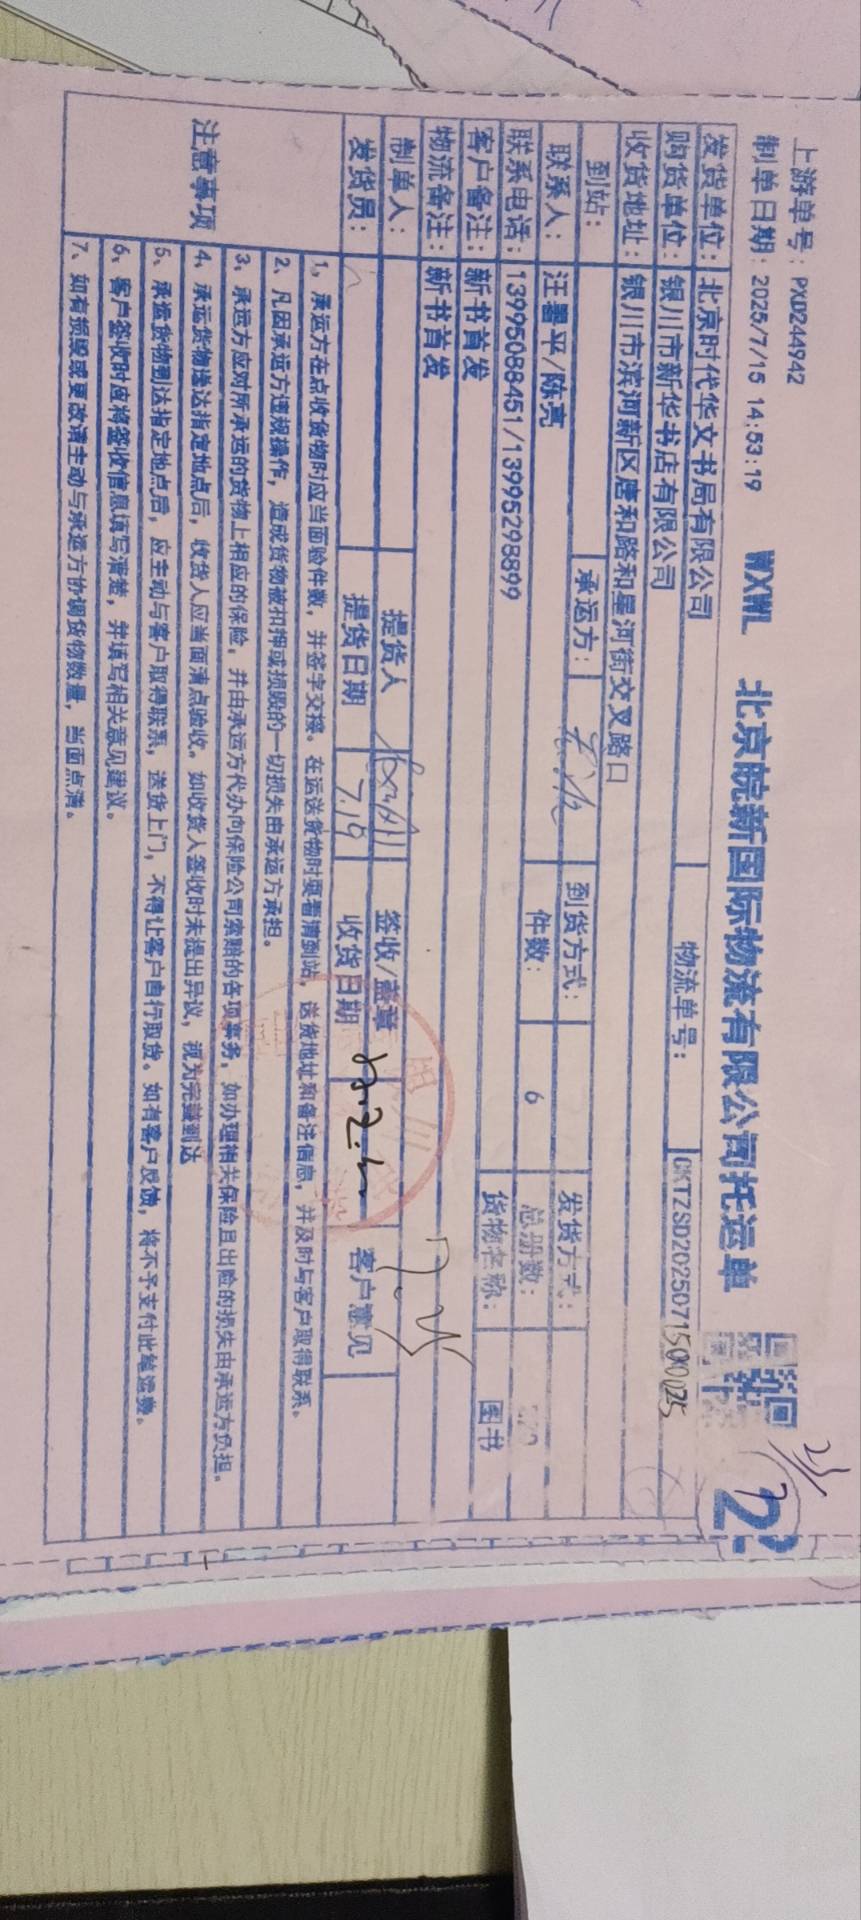 上游单号：PX0244942
制单日期：2025/7/15 14:53:19 WXWL 北京皖新国际物流有限公司托运单
发货单位：北京时代华文书局有限公司 物流单号： CKTZSD20250715000025
购货单位：银川市新华书店有限公司
收货地址：银川市滨河新区唐和路和星河街交叉路口
到站： 承运方： 到货方式： 发货方式：
联系人：汪晋平/陈亮 件数： 6 总册数：
联系电话：13995088451/13995298899 货物名称： 图书
客户备注：新书首发
物流备注：新书首发
制单人： 提货人 签收/盖章
发货员： 提货日期 7.19 收货日期 客户意见
注意事项
1、承运方在点收货物时应当面验件数，并签字交接。在运送货物时要看清到站，送货地址和备注信息，并及时与客户取得联系。
2、凡因承运方违规操作，造成货物被扣押或损毁的一切损失由承运方承担。
3、承运方应对所承运的货物上相应的保险，并由承运方代办向保险公司索赔的各项事务，如办理相关保险且出险的损失由承运方负担。
4、承运货物送达指定地点后，收货人应当面清点验收。如收货人签收时未提出异议，视为完整到达
5、承运货物到达指定地点后，应主动与客户取得联系，送货上门，不得让客户自行取货。如有客户反馈，将不予支付此笔运费。
6、客户签收时应将签收信息填写清楚，并填写相关意见建议。
7、如有损毁或更改请主动与承运方协调货物数量，当面点清。